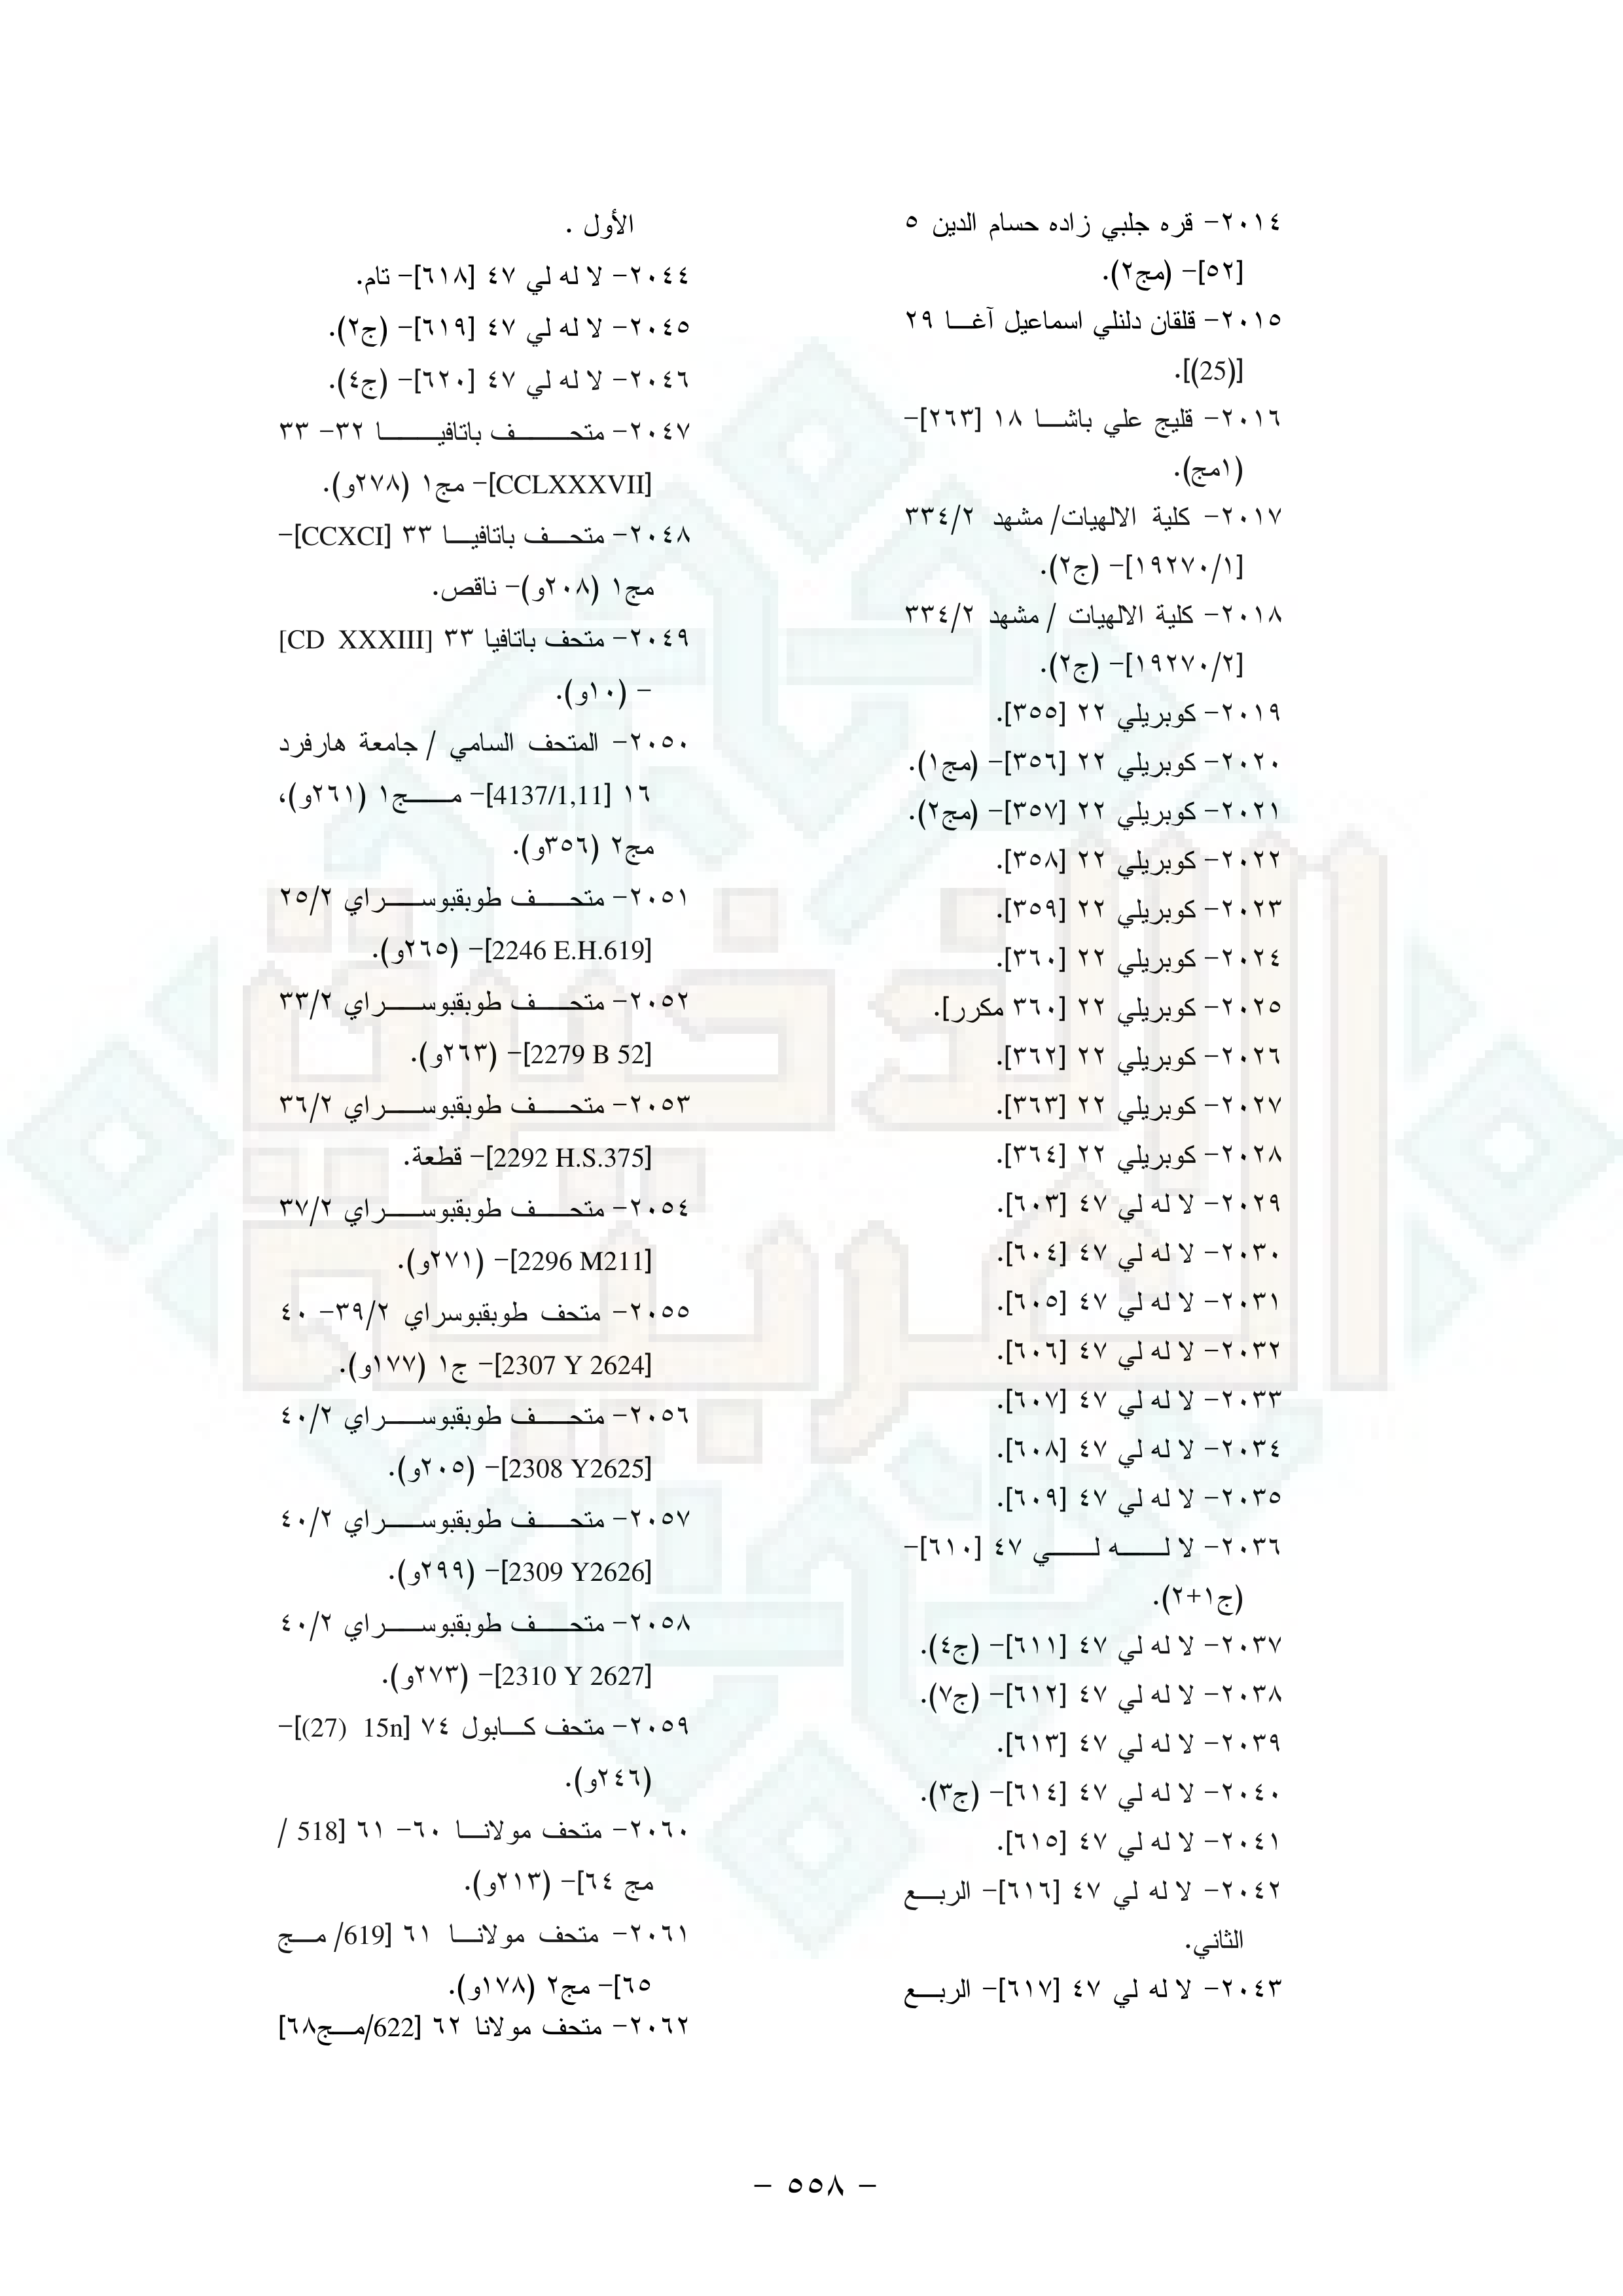 ٢٠١٤- قره جلبي زاده حسام الدين ٥
[٥٢]- (مج٢).
٢٠١٥- قلقان دلنلي اسماعيل آغا ٢٩
[(25)].
٢٠١٦- قليج علي باشا ١٨ [٢٦٣]-
(١مج).
٢٠١٧- كلية الالهيات/ مشهد ٣٣٤/٢
[١٩٢٧٠/١]- (ج٢).
٢٠١٨- كلية الالهيات / مشهد ٣٣٤/٢
[١٩٢٧٠/٢]- (ج٢).
٢٠١٩- كوبريلي ٢٢ [٣٥٥].
٢٠٢٠- كوبريلي ٢٢ [٣٥٦]- (مج١).
٢٠٢١- كوبريلي ٢٢ [٣٥٧]- (مج٢).
٢٠٢٢- كوبريلي ٢٢ [٣٥٨].
٢٠٢٣- كوبريلي ٢٢ [٣٥٩].
٢٠٢٤- كوبريلي ٢٢ [٣٦٠].
٢٠٢٥- كوبريلي ٢٢ [٣٦٠ مكرر].
٢٠٢٦- كوبريلي ٢٢ [٣٦٢].
٢٠٢٧- كوبريلي ٢٢ [٣٦٣].
٢٠٢٨- كوبريلي ٢٢ [٣٦٤].
٢٠٢٩- لا له لي ٤٧ [٦٠٣].
٢٠٣٠- لا له لي ٤٧ [٦٠٤].
٢٠٣١- لا له لي ٤٧ [٦٠٥].
٢٠٣٢- لا له لي ٤٧ [٦٠٦].
٢٠٣٣- لا له لي ٤٧ [٦٠٧].
٢٠٣٤- لا له لي ٤٧ [٦٠٨].
٢٠٣٥- لا له لي ٤٧ [٦٠٩].
٢٠٣٦- لا له لي ٤٧ [٦١٠]-
(ج١+٢).
٢٠٣٧- لا له لي ٤٧ [٦١١]- (ج٤).
٢٠٣٨- لا له لي ٤٧ [٦١٢]- (ج٧).
٢٠٣٩- لا له لي ٤٧ [٦١٣].
٢٠٤٠- لا له لي ٤٧ [٦١٤]- (ج٣).
٢٠٤١- لا له لي ٤٧ [٦١٥].
٢٠٤٢- لا له لي ٤٧ [٦١٦]- الربع
الثاني.
٢٠٤٣- لا له لي ٤٧ [٦١٧]- الربع
الأول .
٢٠٤٤- لا له لي ٤٧ [٦١٨]- تام.
٢٠٤٥- لا له لي ٤٧ [٦١٩]- (ج٢).
٢٠٤٦- لا له لي ٤٧ [٦٢٠]- (ج٤).
٢٠٤٧- متحف باتافيا ٣٢- ٣٣
[CCLXXXVII]- مج١ (٢٧٨و).
٢٠٤٨- متحف باتافيا ٣٣ [CCXCI]-
مج١ (٢٠٨و)- ناقص.
٢٠٤٩- متحف باتافيا ٣٣ [CD XXXIII]
- (١٠و).
٢٠٥٠- المتحف السامي / جامعة هارفرد
١٦ [4137/1,11]- مج١ (٢٦١و)،
مج٢ (٣٥٦و).
٢٠٥١- متحف طوبقبوسراي ٢٥/٢
[2246 E.H.619]- (٢٦٥و).
٢٠٥٢- متحف طوبقبوسراي ٣٣/٢
[2279 B 52]- (٢٦٣و).
٢٠٥٣- متحف طوبقبوسراي ٣٦/٢
[2292 H.S.375]- قطعة.
٢٠٥٤- متحف طوبقبوسراي ٣٧/٢
[2296 M211]- (٢٧١و).
٢٠٥٥- متحف طوبقبوسراي ٣٩/٢- ٤٠
[2307 Y 2624]- ج١ (١٧٧و).
٢٠٥٦- متحف طوبقبوسراي ٤٠/٢
[2308 Y2625]- (٢٠٥و).
٢٠٥٧- متحف طوبقبوسراي ٤٠/٢
[2309 Y2626]- (٢٩٩و).
٢٠٥٨- متحف طوبقبوسراي ٤٠/٢
[2310 Y 2627]- (٢٧٣و).
٢٠٥٩- متحف كابول ٧٤ [15n (27)]-
(٢٤٦و).
٢٠٦٠- متحف مولانا ٦٠- ٦١ [518 /
مج ٦٤]- (٢١٣و).
٢٠٦١- متحف مولانا ٦١ [619/ مج
٦٥]- مج٢ (١٧٨و).
٢٠٦٢- متحف مولانا ٦٢ [622/مج٦٨]
- ٥٥٨ -